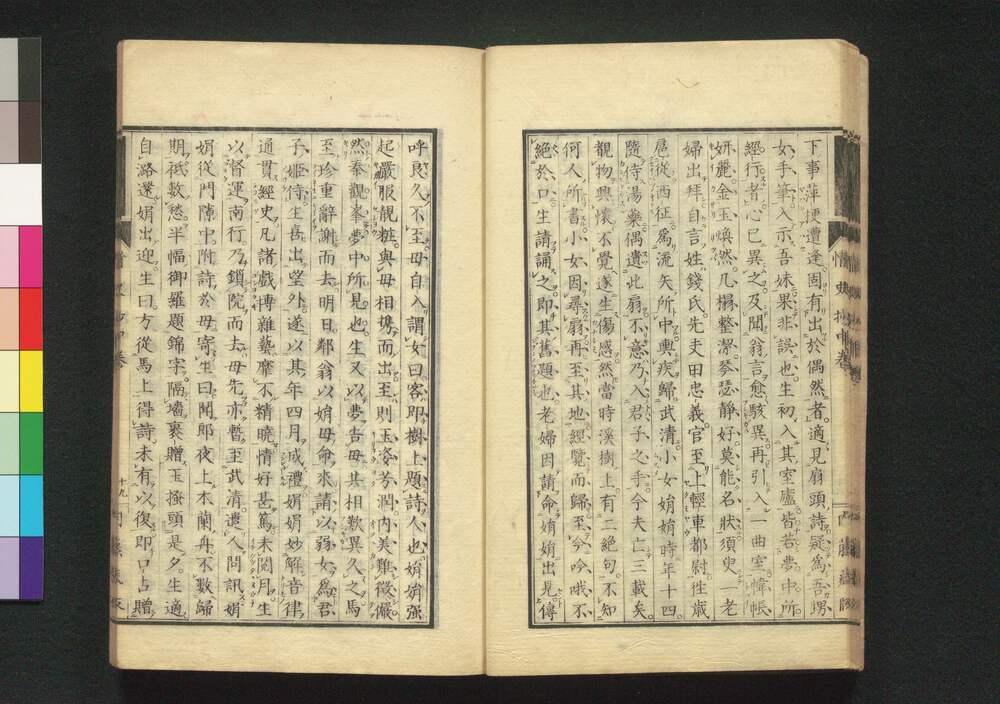 下事萍梗遭逢固有出於偶然者適見扇頭詩疑爲吾甥
女手筆入示吾妹果非誤也生初入其室廬皆若夢中所
經行者心已異之及聞翁言愈駭異再引入一曲室幃帳
妍麗金玉煥然几榻整潔琴瑟靜好莫能名狀須臾一老
婦出拜自言姓錢氏先夫田忠義官至上輕車都尉徃歲
扈從西征爲流矢所中輿疾歸武清小女娟娟時年十四
隨侍湯藥偶遺此扇不意乃入君子之手今夫亡三載矣
覩物興懷不覺遂生傷感然當時溪樹上有二絶句不知
何人所書小女因尋扇再至其地經覽而歸至今吟哦不
絶於口生請誦之即其舊題也老婦因請命娟娟出見傳
呼良久不至母自入謂女曰客即樹上題詩人也娟娟強
起嚴服靚粧與母相携而出至則玉姿芳潤内美難徴儼
然秦觀峯夢中所見也生又以夢告母共相歎異久之馬
至珍重辭謝而去明日鄰翁以娟母命來請以弱女爲君
子姬侍生喜出望外遂以其年四月成禮娟娟妙解音律
通貫經史凡諸戲博雜藝靡不精曉情好甚篤未閲月生
以督運南行乃鎖院而去母先亦暫至武清遣人問訊娟
娟從門隙中附詩於母寄生曰聞郎夜上木蘭舟不數歸
期祗數愁半幅御羅題錦字隔墻裹贈玉搔頭是夕生適
自潞還娟出迎生曰方從馬上得詩未有以復即口占贈
十九